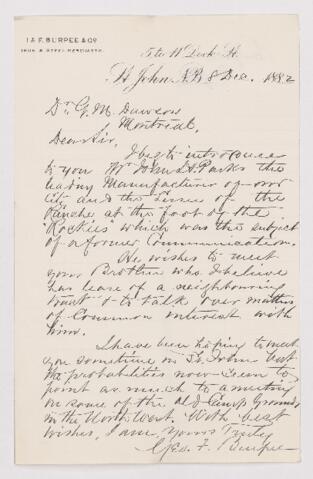 I & F. BURPEE & CO
IRON & STEEL MERCHANTS.
5 to 11 Dock St.
St John, N.B 8 Dec. 1882
Dr G. M. Dawson
Montreal,
Dear Sir,
I beg to introduce
to you Mr John H. Parks the
leading Manufacturer of our
City and the Lessee of the
Ranche at the foot of the
Rockies which was the subject
of a former Communication.
He wishes to meet
your Brother who I believe
has lease of a neighbouring
tract & to talk over matters
of Common interest with
him.
I have been hoping to meet
you sometime in St John but
the probabilities now seem to
point as much to a meeting
on some of the old Camp Grounds
in the North West. With best
wishes, I am Yours Truly
Geo. F. Burpee